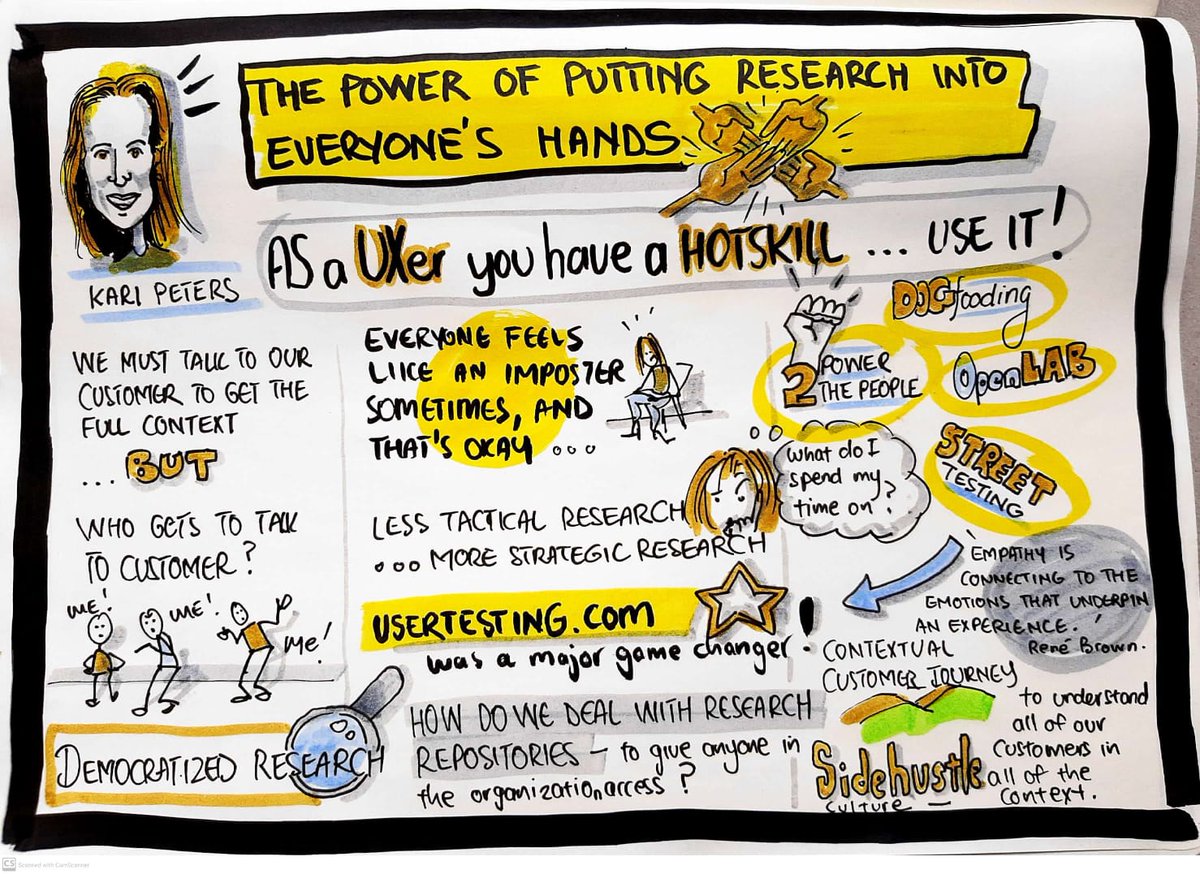 THE POWER OF PUTTING RESEARCH INTO
EVERYONE'S HANDS
KARI PETERS
AS a UXer you have a HOTSKILL ... USE IT!
WE MUST TALK TO OUR
CUSTOMER TO GET THE
FULL CONTEXT
... BUT
WHO GETS TO TALK
TO CUSTOMER?
me!
me!
me!
DEMOCRATIZED RESEARCH
EVERYONE FEELS
LIKE AN IMPOSTER
SOMETIMES, AND
THAT'S OKAY ...
LESS TACTICAL RESEARCH
... MORE STRATEGIC RESEARCH
USERTESTING.COM
was a major game changer!
HOW DO WE DEAL WITH RESEARCH
REPOSITORIES - to give anyone in
the organization access?
2 POWER
THE PEOPLE
DOGfooding
OpenLAB
STREET
TESTING
what do I
spend my
time on?
EMPATHY IS
CONNECTING TO THE
EMOTIONS THAT UNDERPIN
AN EXPERIENCE.
René Brown.
CONTEXTUAL
CUSTOMER JOURNEY
to understand
all of our
customers in
all of the
context.
Sidehustle
culture -
CS Scanned with CamScanner